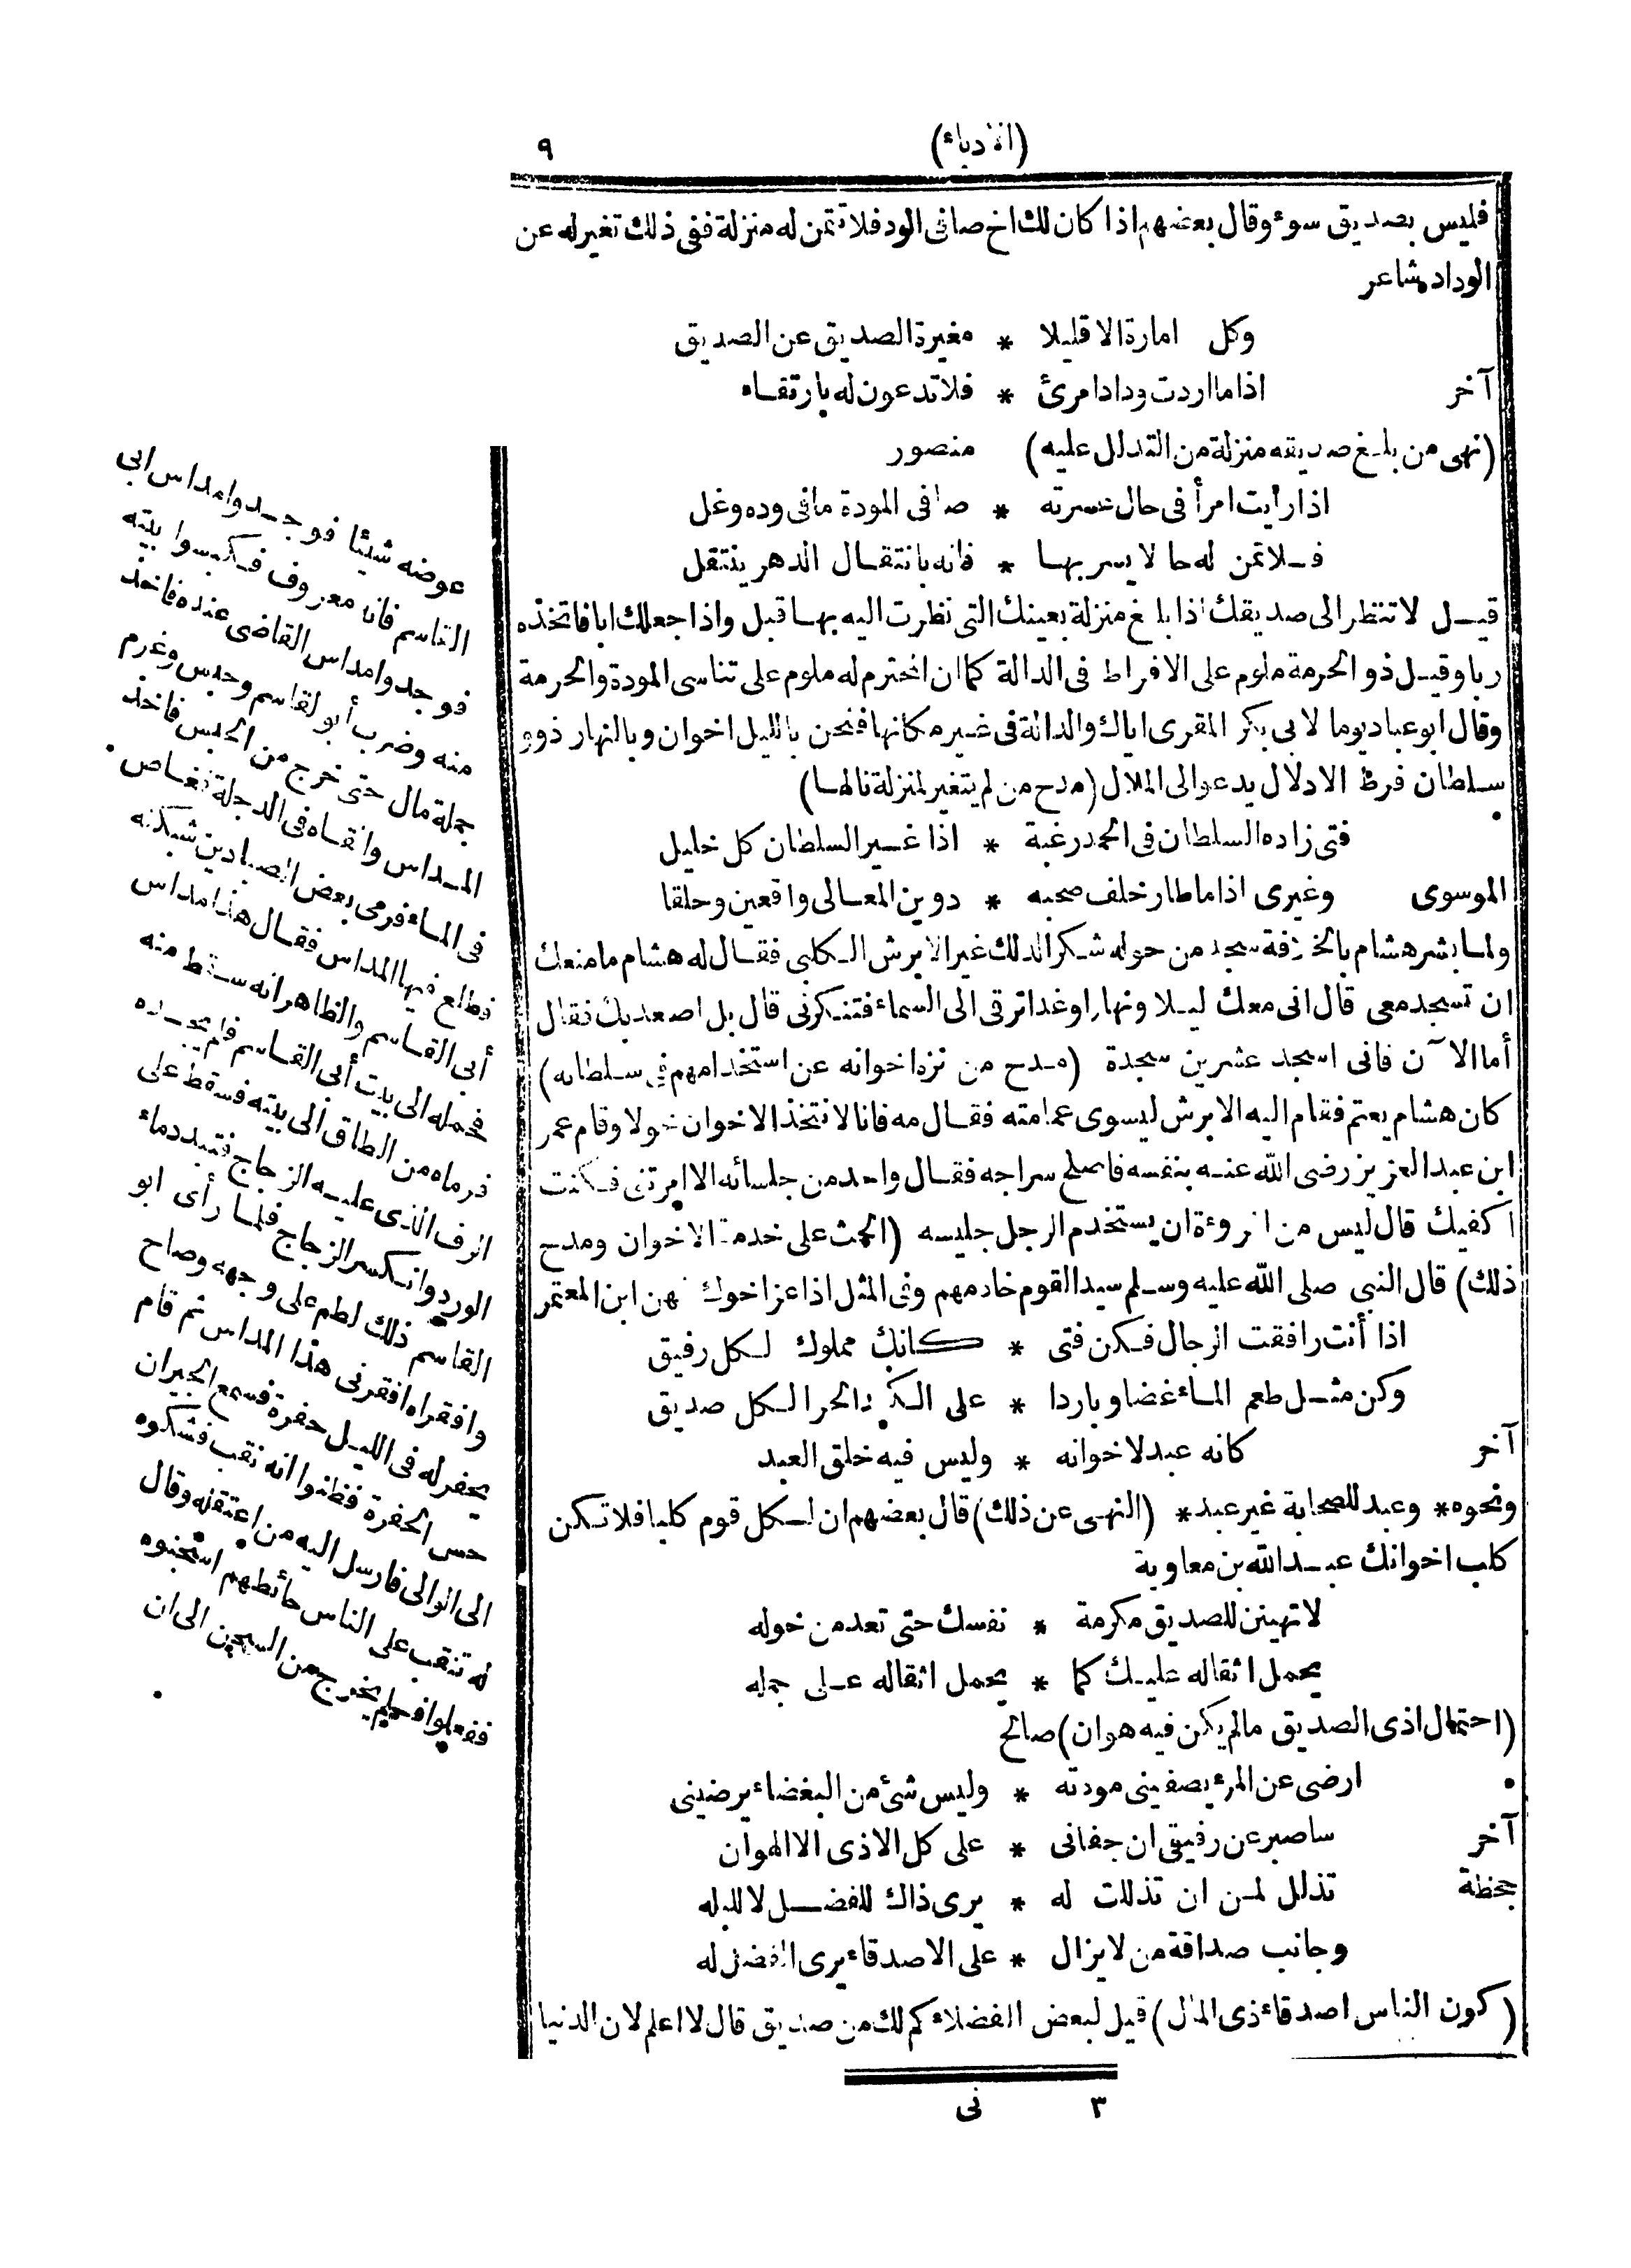 (الادباء)
٩
فليس بصديق سوء وقال بعضهم اذا كان لك اخ صافى الود فلا تتمن له منزلة ففى ذلك تغير له عن
الوداد شاعر
وكل امارة الا قليلا * مغيرة الصديق عن الصديق
آخر اذا ما اردت وداد امرئ * فلا تدعون له بارتقاء
(نهى من بلغ صديقه منزلة من التدلل عليه) منصور
اذا رأيت امرأ فى حال عسرته * صافى المودة ما فى وده وغل
فلا تمن له حالا يسر بها * فانه بانتقال الدهر ينتقل
قيل لا تنظر الى صديقك اذا بلغ منزلة بعينك التى نظرت اليه بها قبل واذا جعلك ابا فاتخذه
ربا وقيل ذو الحرمة ملوم على الافراط فى الدالة كما ان المحترم له ملوم على تناسى المودة والحرمة
وقال ابو عباد يوما لابى بكر المقرى اياك والدالة فى غير مكانها فنحن بالليل اخوان وبالنهار ذوو
سلطان فرط الادلال يدعو الى الملال (مدح من لم يتغير لمنزلة نالها)
فتى زاده السلطان فى الحمد رغبة * اذا غير السلطان كل خليل
الموسوى وغيرى اذا ما طار خلف صحبه * دوين المعالى واقعين وحلقا
ولما بشر هشام بالخلافة سجد من حوله شكرا لذلك غير الابرش الكلبى فقال له هشام ما منعك
ان تسجد معى قال انى معك ليلا ونهارا وغدا ترقى الى السماء فتنكرنى قال بل اصعد بك فقال
أما الآن فانى اسجد عشرين سجدة (مدح من نزه اخوانه عن استخدامهم فى سلطانه)
كان هشام يعتم فقام اليه الابرش ليسوى عمامته فقال مه فانا لا نتخذ الاخوان خولا وقام عمر
ابن عبد العزيز رضى الله عنه بنفسه فاصلح سراجه فقال واحد من جلسائه الا امرتنى فكنت
اكفيك قال ليس من المروءة ان يستخدم الرجل جليسه (الحث على خدمة الاخوان ومدح
ذلك) قال النبى صلى الله عليه وسلم سيد القوم خادمهم وفى المثل اذا عز اخوك فهن ابن المعتمر
اذا أنت رافقت الرجال فكن فتى * كانك مملوك لكل رفيق
وكن مثل طعم الماء غضا وباردا * على الكبد الحرا لكل صديق
آخر كانه عبد لاخوانه * وليس فيه خلق العبد
ونحوه * وعبد للصحابة غير عبد * (النهى عن ذلك) قال بعضهم ان لكل قوم كلبا فلا تكن
كلب اخوانك عبد الله بن معاوية
لا تهينن للصديق مكرمة * نفسك حتى تعد من خوله
يحمل اثقاله عليك كما * يحمل اثقاله على جمله
(احتمال اذى الصديق ما لم يكن فيه هوان) صالح
ارضى عن المرء يصفينى مودته * وليس شئ من البغضاء يرضينى
آخر ساصبر عن رفيقى ان جفانى * على كل الاذى الا الهوان
جحظة تذلل لمن ان تذللت له * يرى ذاك للفضل لا للبله
وجانب صداقة من لا يزال * على الاصدقاء يرى الفضل له
(كون الناس اصدقاء ذى المال) قيل لبعض الفضلاء كم لك من صديق قال لا اعلم لان الدنيا
٣ نى
عوضه شيئا فوجدوا مداس ابى
القاسم فانه معروف فكبسوا بيته
فوجدوا مداس القاضى عنده فاخذ
منه وضرب أبو القاسم وحبس وغرم
جملة مال حتى خرج من الحبس فاخذ
المداس وألقاه فى الدجلة فغاص
فى الماء فرمى بعض الصيادين شبكته
فطلع فيها المداس فقال هذا مداس
أبى القاسم والظاهر انه سقط منه
فحمله الى بيت أبى القاسم فلم يجده
فرماه من الطاق الى بيته فسقط على
الرف الذى عليه الزجاج فتبدد ماء
الورد وانكسر الزجاج فلما رأى ابو
القاسم ذلك لطم على وجهه وصاح
وافقراه افقرنى هذا المداس ثم قام
يحفر له فى الليل حفرة فسمع الجيران
حس الحفرة فظنوا انه نقب فشكوه
الى الوالى فارسل اليه من اعتقله وقال
له تنقب على الناس حائطهم اسجنوه
ففعلوا فلم يخرج من السجن الى ان